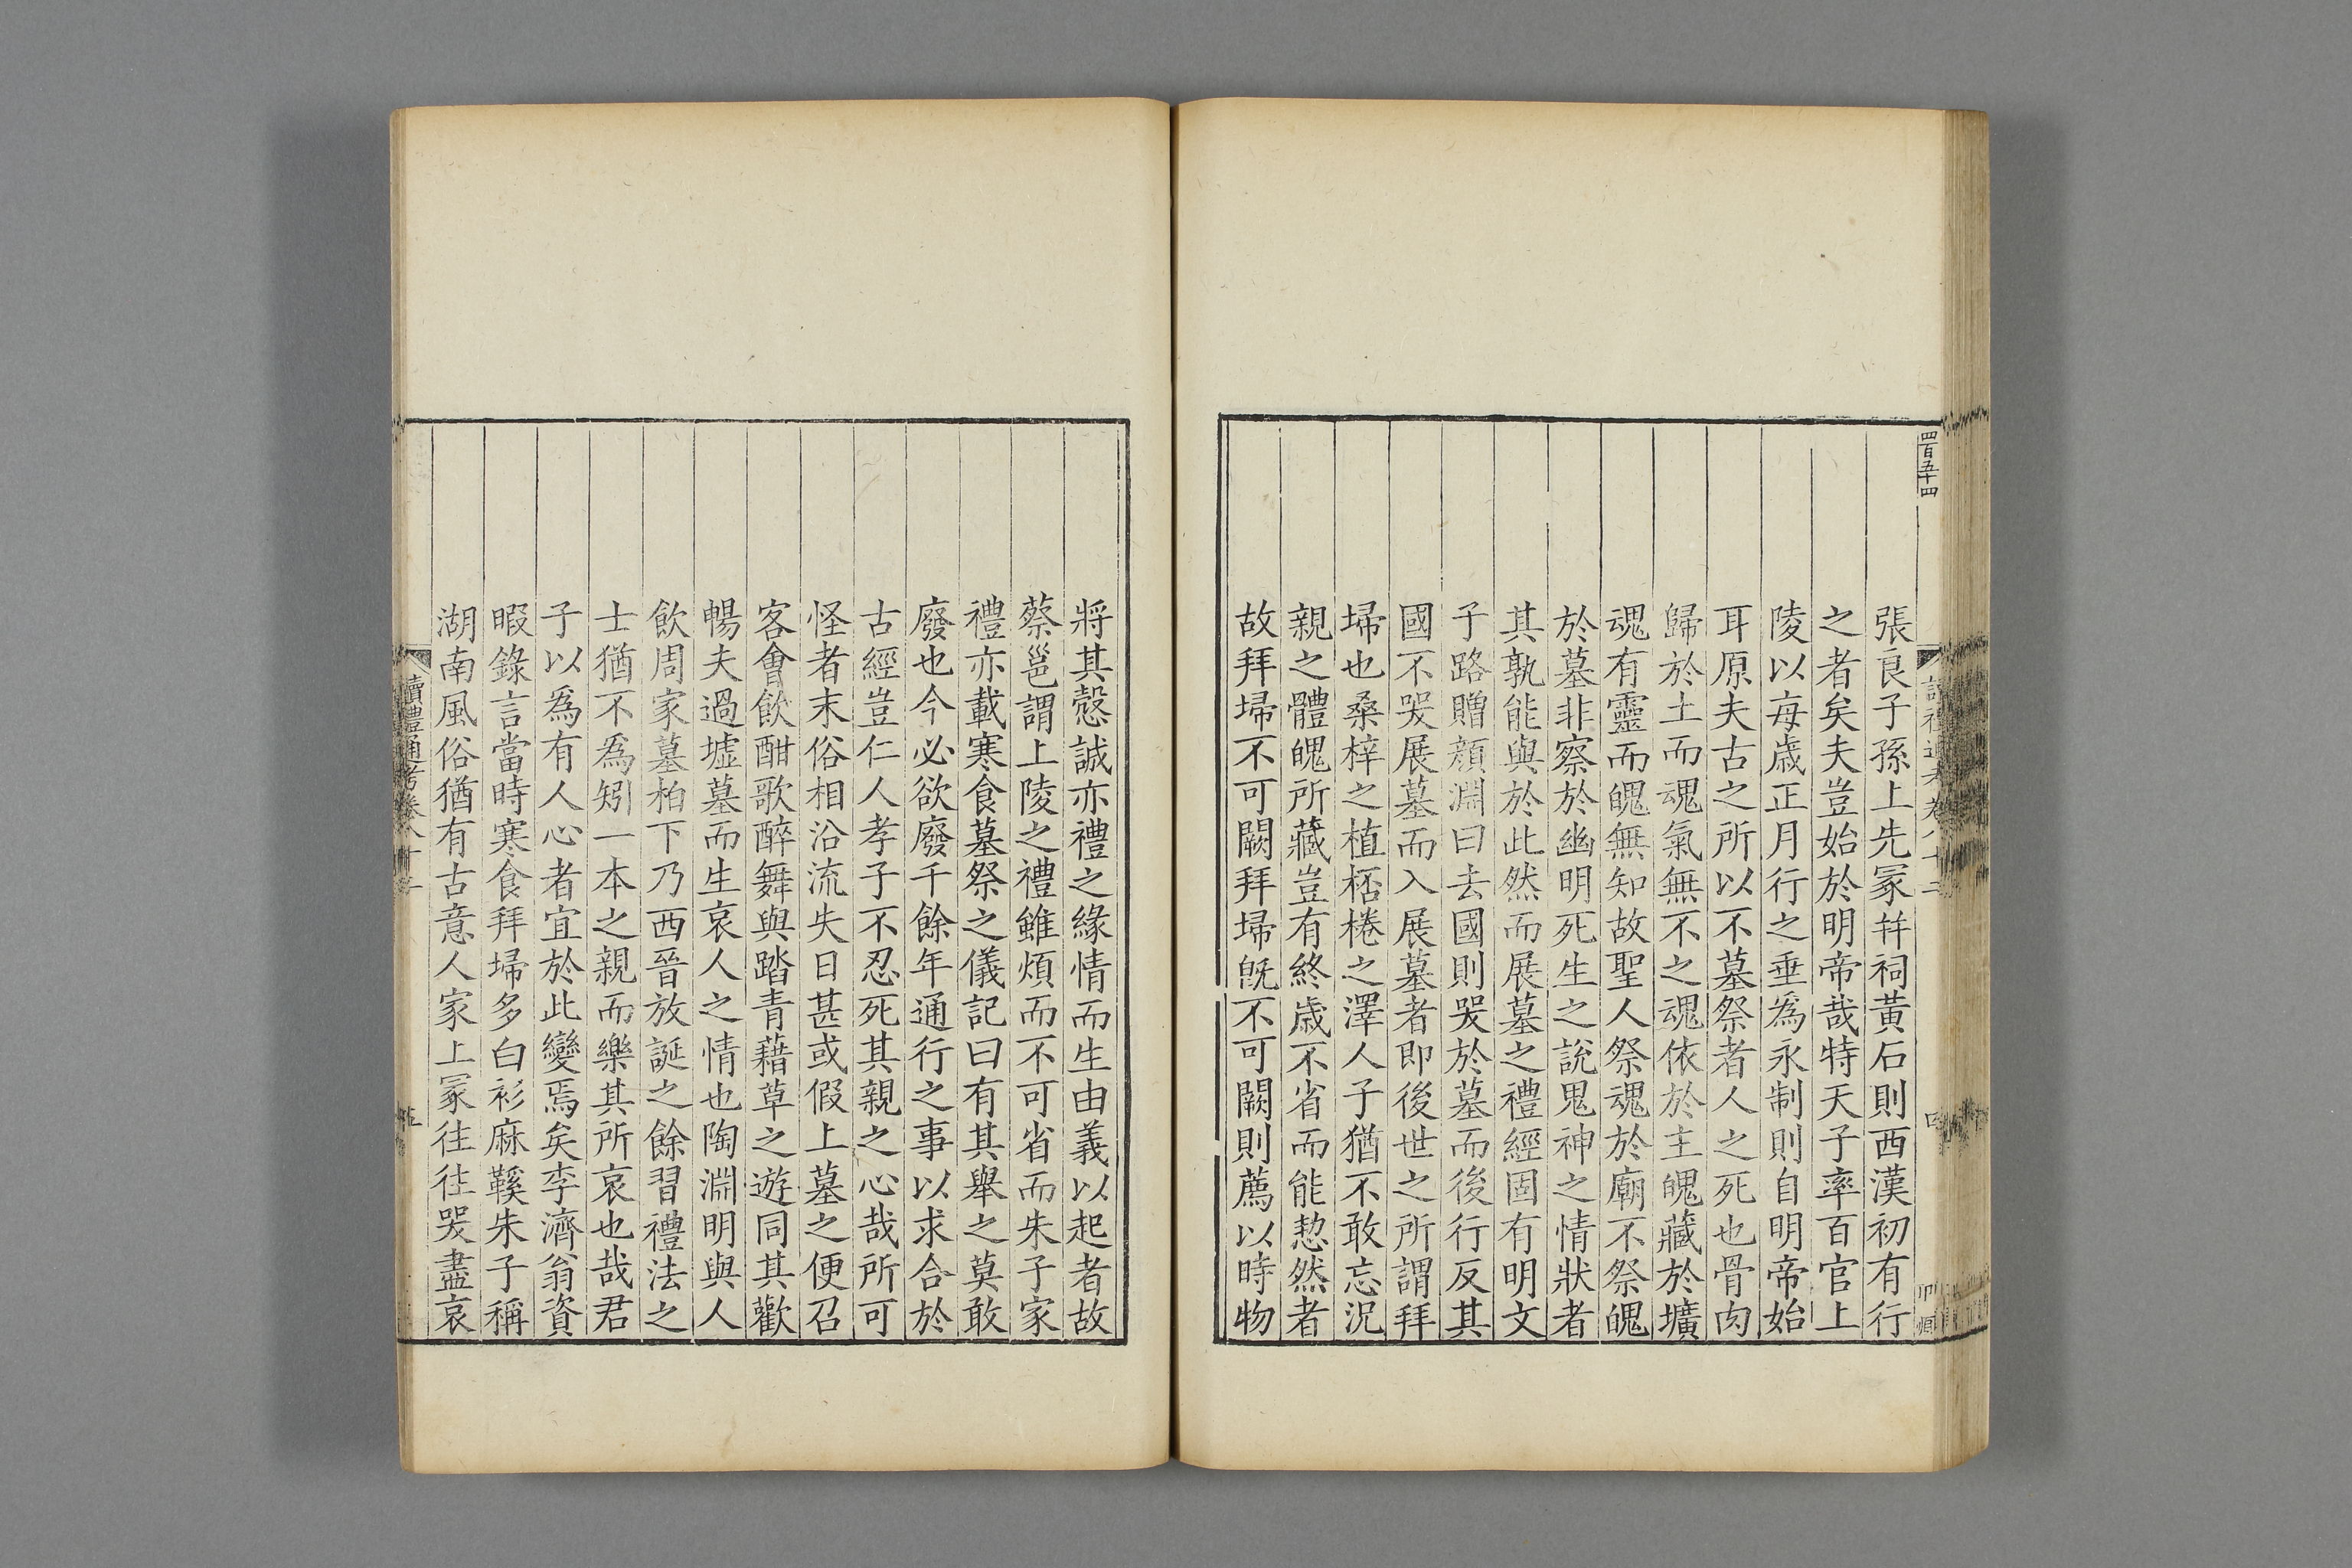 四百五十四
張良子孫上先冢幷祠黃石則西漢初有行
之者矣夫豈始於明帝哉特天子率百官上
陵以每歲正月行之垂爲永制則自明帝始
耳原夫古之所以不墓祭者人之死也骨肉
歸於土而魂氣無不之魂依於主魄藏於壙
魂有靈而魄無知故聖人祭魂於廟不祭魄
於墓非察於幽明死生之說鬼神之情狀者
其孰能與於此然而展墓之禮經固有明文
子路贈顏淵曰去國則哭於墓而後行反其
國不哭展墓而入展墓者即後世之所謂拜
埽也桑梓之植桮棬之澤人子猶不敢忘況
親之體魄所藏豈有終歲不省而能恝然者
故拜埽不可闕拜埽旣不可闕則薦以時物
將其慤誠亦禮之緣情而生由義以起者故
蔡邕謂上陵之禮雖煩而不可省而朱子家
禮亦載寒食墓祭之儀記曰有其舉之莫敢
廢也今必欲廢千餘年通行之事以求合於
古經豈仁人孝子不忍死其親之心哉所可
怪者末俗相沿流失日甚或假上墓之便召
客會飲酣歌醉舞與踏青藉草之遊同其歡
暢夫過墟墓而生哀人之情也陶淵明與人
飲周家墓柏下乃西晉放誕之餘習禮法之
士猶不爲矧一本之親而樂其所哀也哉君
子以爲有人心者宜於此變焉矣李濟翁資
暇錄言當時寒食拜埽多白衫麻鞵朱子稱
湖南風俗猶有古意人家上冢往往哭盡哀
讀禮通考卷八十二